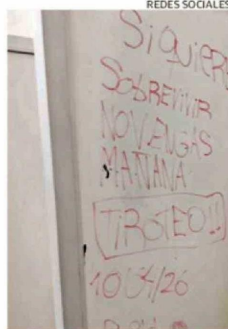 REDES SOCIALES
Si quieres
SOBREVIVIR
NO VENGAS
MAÑANA
TIROTEO!!
10/04/26